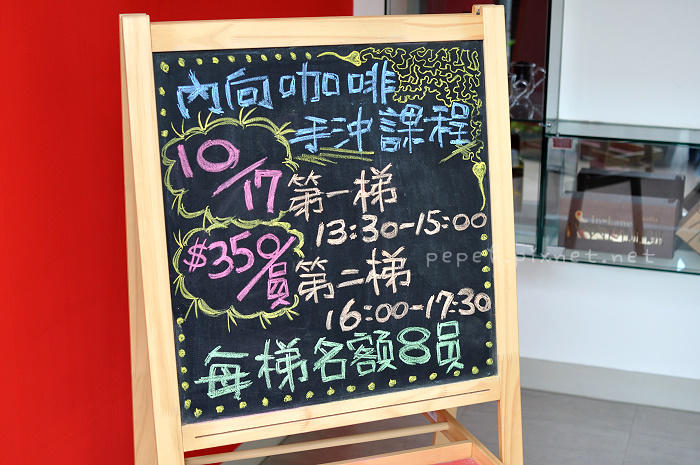 內向咖啡
手沖課程
10/17
第一梯
13:30-15:00
$350/員
第二梯
16:00-17:30
每梯名額8員